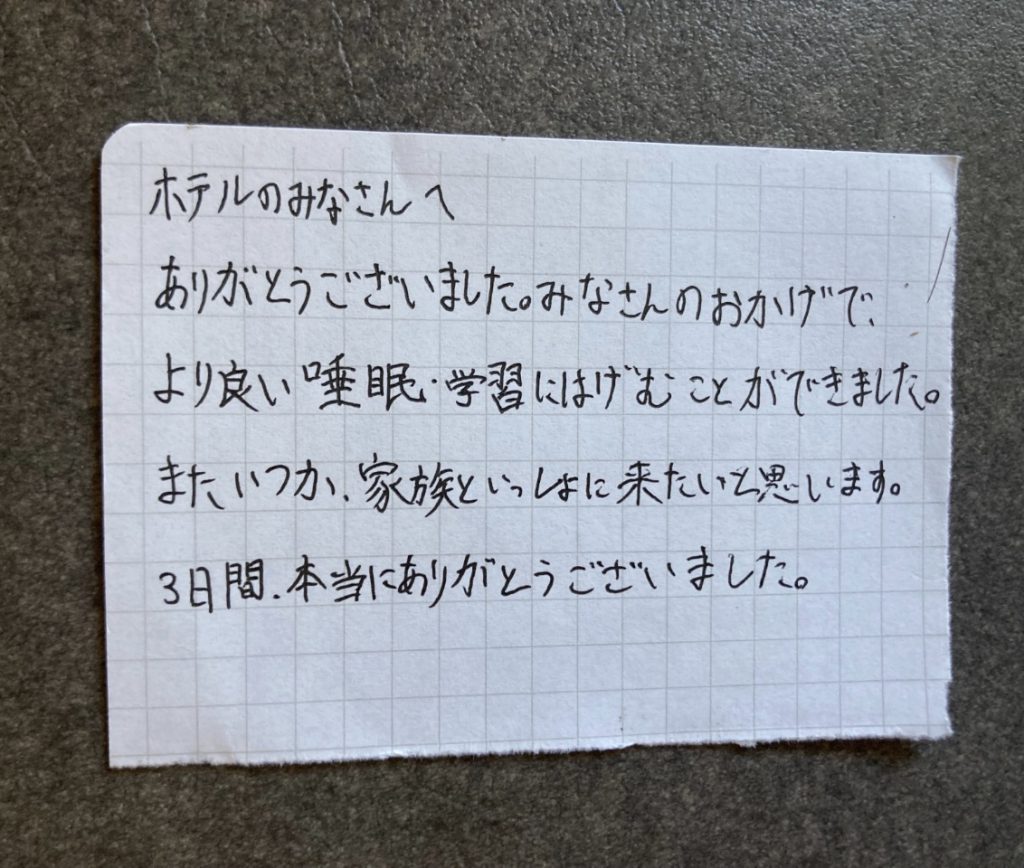 ホテルのみなさんへ
ありがとうございました。みなさんのおかげで、
より良い睡眠・学習にはげむことができました。
またいつか、家族といっしょに来たいと思います。
3日間、本当にありがとうございました。